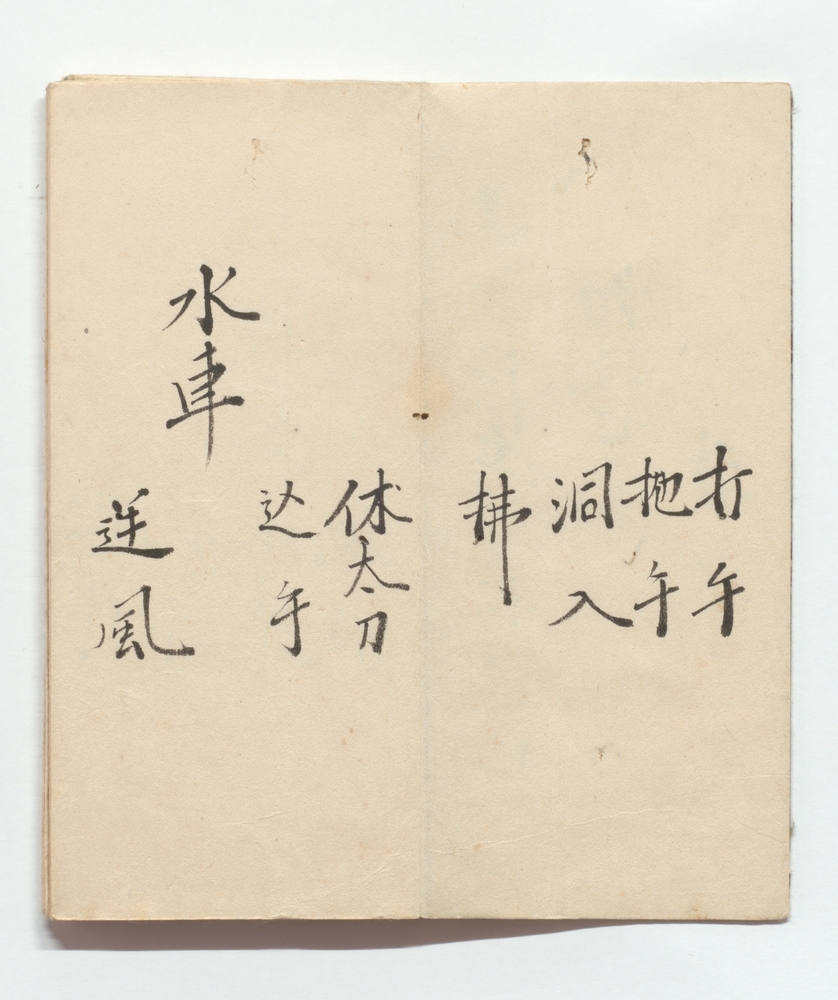 打午
抛午
洞入
拂
休太刀
込手
水車
逆風